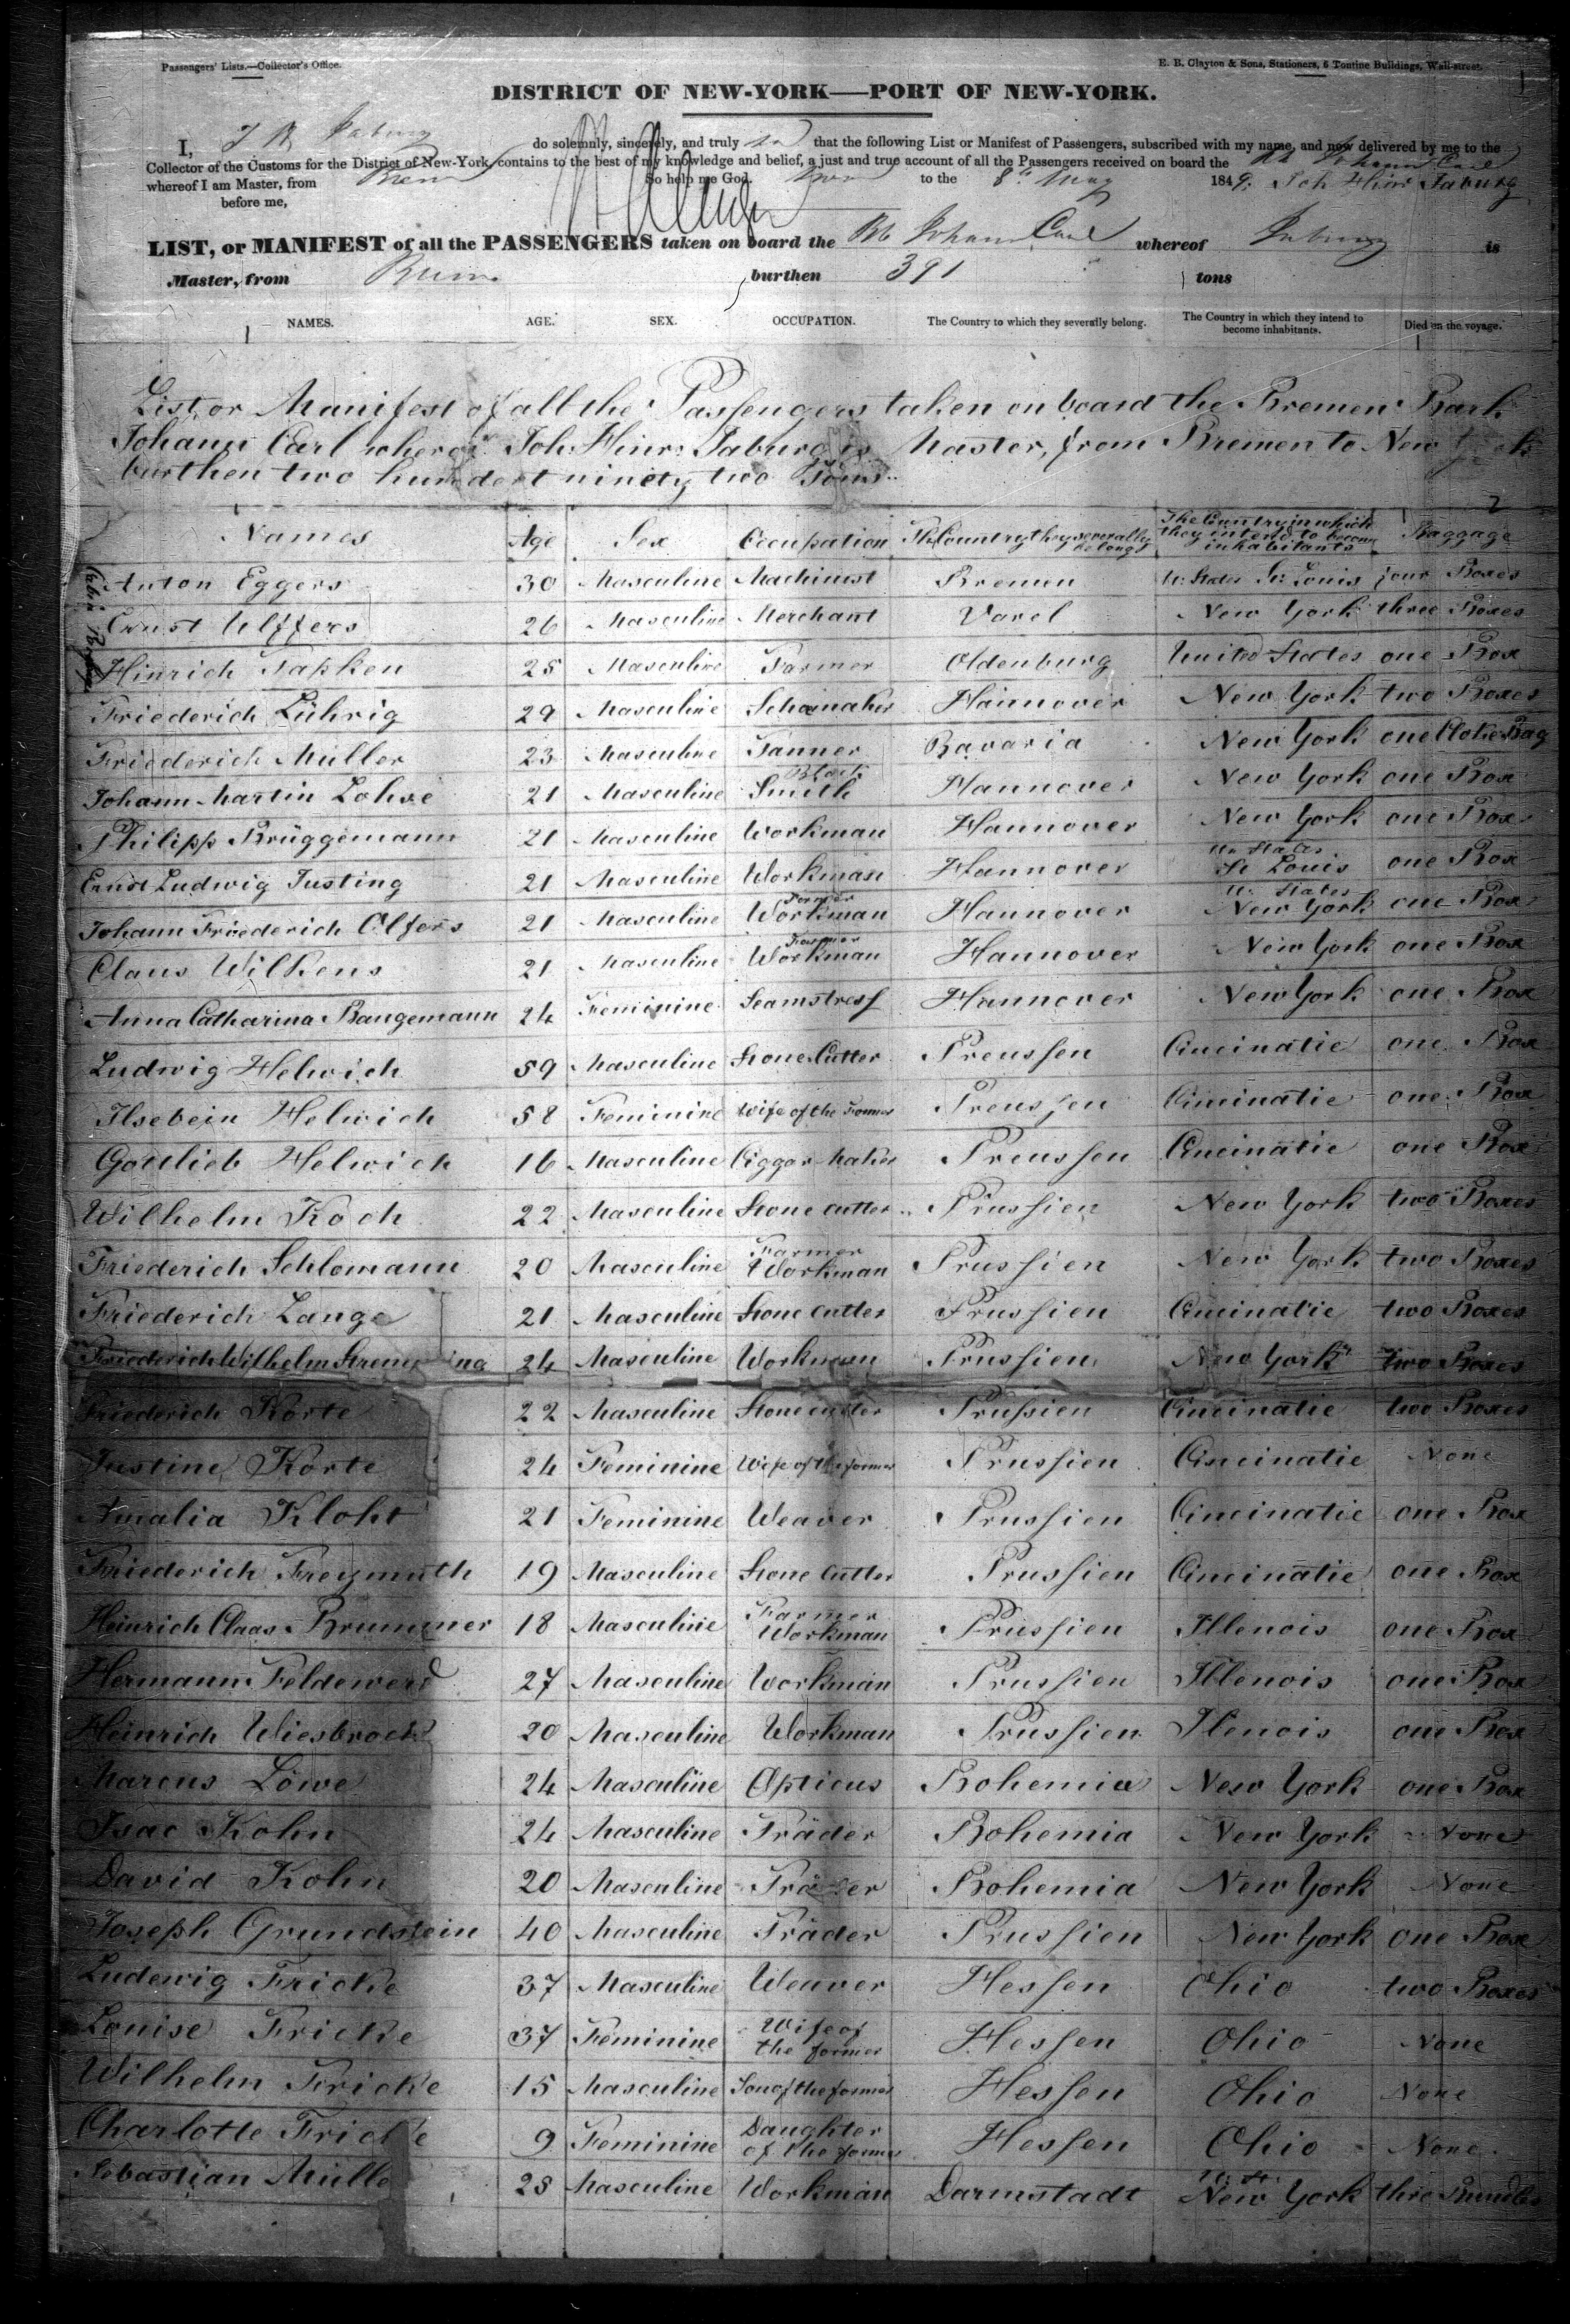 Passengers' Lists.—Collector's Office.
E. B. Clayton & Sons, Stationers, 6 Tontine Buildings, Wall-street.
DISTRICT OF NEW-YORK—PORT OF NEW-YORK.
I, Jaburg do solemnly, sincerely, and truly that the following List or Manifest of Passengers, subscribed with my name, and now delivered by me to the
Collector of the Customs for the District of New-York, contains to the best of my knowledge and belief, a just and true account of all the Passengers received on board the Johann Carl
whereof I am Master, from So help me God. to the 8th May 1849. Joh Hinr Jaburg
before me,
LIST, or MANIFEST of all the PASSENGERS taken on board the Bk Johann Carl whereof Jaburg is
Master, from burthen 391 tons
NAMES. AGE. SEX. OCCUPATION. The Country to which they severally belong. The Country in which they intend to become inhabitants. Died on the voyage.
List or Manifest of all the Passengers taken on board the Bremen Bark
Johann Carl whereof Joh. Hinr. Jaburg is Master, from Bremen to New York
burthen two hundert ninety two Tons.
2
Names Age Sex Occupation The Country they severally belongs The Country in which they intend to become inhabitants Baggage
Anton Eggers 30 Masculine Machinist Bremen U. States St. Louis four Boxes
Ernst Ulffers 26 Masculine Merchant Varel New York three Boxes
Hinrich Tapken 25 Masculine Farmer Oldenburg United States one Box
Friederich Lührig 29 Masculine Schomaker Hannover New York two Boxes
Friederich Müller 23 Masculine Tanner Bavaria New York one Cloke Bag
Johann Martin Lohse 21 Masculine Black Smith Hannover New York one Box
Philipp Brüggemann 21 Masculine Workman Hannover New York one Box
Ernst Ludwig Justing 21 Masculine Workman Hannover Un States St Louis one Box
Johann Friederich Olfers 21 Masculine Farmer Workman Hannover U. States New York one Box
Claus Wilkens 21 Masculine Farmer Workman Hannover New York one Box
Anna Catharina Bangemann 24 Feminine Seamstress Hannover New York one Box
Ludwig Helwich 59 Masculine Stone Cutter Preussen Cincinatie one Box
Ilsebein Helwich 58 Feminine Wife of the Former Preussen Cincinatie one Box
Gottlieb Helwich 16 Masculine Ciggar Maker Preussen Cincinatie one Box
Wilhelm Koch 22 Masculine Stone cutter Prussien New York two Boxes
Friederich Schlomann 20 Masculine Farmer Workman Prussien New York two Boxes
Friederich Lange 21 Masculine Stone cutter Prussien Cincinatie two Boxes
Friederich Wilhelm 24 Masculine Workman Prussien New York two Boxes
Friederich Korte 22 Masculine Stone cutter Prussien Cincinatie two Boxes
Justine Korte 24 Feminine Wife of the former Prussien Cincinatie None
Amalia Kloht 21 Feminine Weaver Prussien Cincinatie one Box
Friederich Freymuth 19 Masculine Stone Cutter Prussien Cincinatie one Box
Heinrich Claas Brummer 18 Masculine Farmer Workman Prussien Illenois one Box
Hermann Feldewerd 27 Masculine Workman Prussien Illenois one Box
Heinrich Wiesbrock 20 Masculine Workman Prussien Ilenois one Box
Marcus Löwe 24 Masculine Opticus Bohemia New York one Box
Isac Kohn 24 Masculine Träder Bohemia New York None
David Kohn 20 Masculine Träder Bohemia New York None
Joseph Grundstein 40 Masculine Träder Prussien New York one Box
Ludewig Fricke 37 Masculine Weaver Hessen Ohio two Boxes
Louise Fricke 37 Feminine Wife of the former Hessen Ohio None
Wilhelm Fricke 15 Masculine Son of the former Hessen Ohio None
Charlotte Fricke 9 Feminine Daughter of the former Hessen Ohio None
Sebastian Mülle 25 Masculine Workman Darmstadt U. St. New York thre Bundles